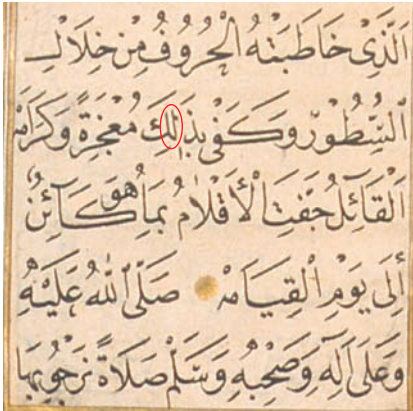 الَّذِي خَاطَبَتْهُ الْحُرُوفُ مِنْ خِلَالِ
السُّطُورِ وَكَفَى بِذَلِكَ مُعْجِزَةً وَكَرَامَة
الْقَائِلُ جَفَّتِ الْأَقْلَامُ بِمَا هُوَ كَائِنٌ
إِلَى يَوْمِ الْقِيَامَةِ صَلَّى اللهُ عَلَيْهِ
وَعَلَى آلِهِ وَصَحْبِهِ وَسَلَّمَ صَلَاةً نَرْجُو بِهَا